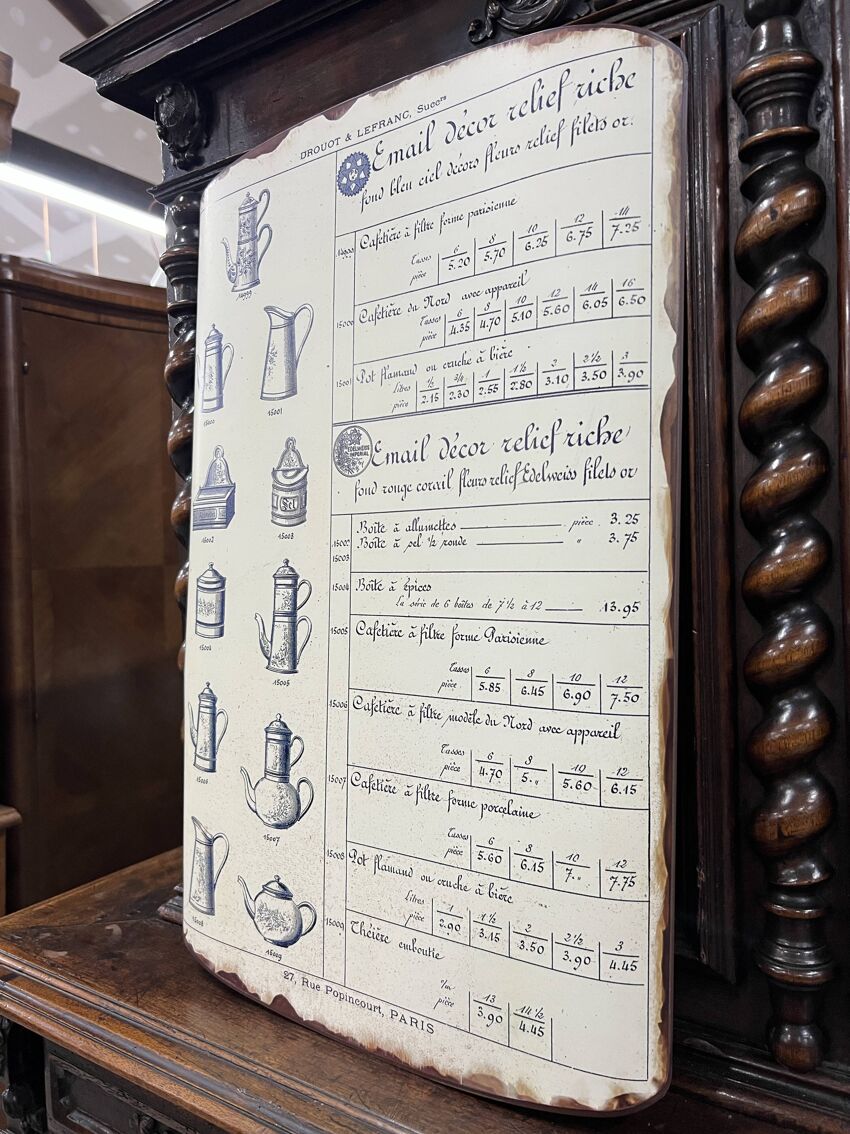 DROUOT & LEFRANC, Succrs
Email décor relief riche
fond bleu ciel décors fleurs relief filets or.
14999
Cafetière à filtre forme parisienne
Tasses 6 8 10 12 14
pièce 5.20 5.70 6.25 6.75 7.25
15000
Cafetière du Nord avec appareil
Tasses 6 8 10 12 14 16
pièce 4.35 4.70 5.10 5.60 6.05 6.50
15001
Pot flamand ou cruche à bière
Litres ½ ¾ 1 1½ 2 2½ 3
pièce 2.15 2.30 2.55 2.80 3.10 3.50 3.90
EDELWEISS
IMPERIAL
Email décor relief riche
fond rouge corail fleurs relief Edelweiss filets or
15002 Boîte à allumettes pièce 3.25
15003 Boîte à sel ½ ronde " 3.75
15004 Boîte à épices
La série de 6 boîtes de 7½ à 12 13.95
15005 Cafetière à filtre forme Parisienne
Tasses 6 8 10 12
pièce 5.85 6.45 6.90 7.50
15006 Cafetière à filtre modèle du Nord avec appareil
Tasses 6 8 10 12
pièce 4.70 5.„ 5.60 6.15
15007 Cafetière à filtre forme porcelaine
Tasses 6 8 10 12
pièce 5.60 6.15 7.„ 7.75
15008 Pot flamand ou cruche à bière
Litres 1 1½ 2 2½ 3
pièce 2.90 3.15 3.50 3.90 4.45
15009 Théière emboutie
c/m 13 14½
pièce 3.90 4.45
14999
15000
15001
15002
Sel
15003
15004
15005
15006
15007
15008
15009
27, Rue Popincourt, PARIS